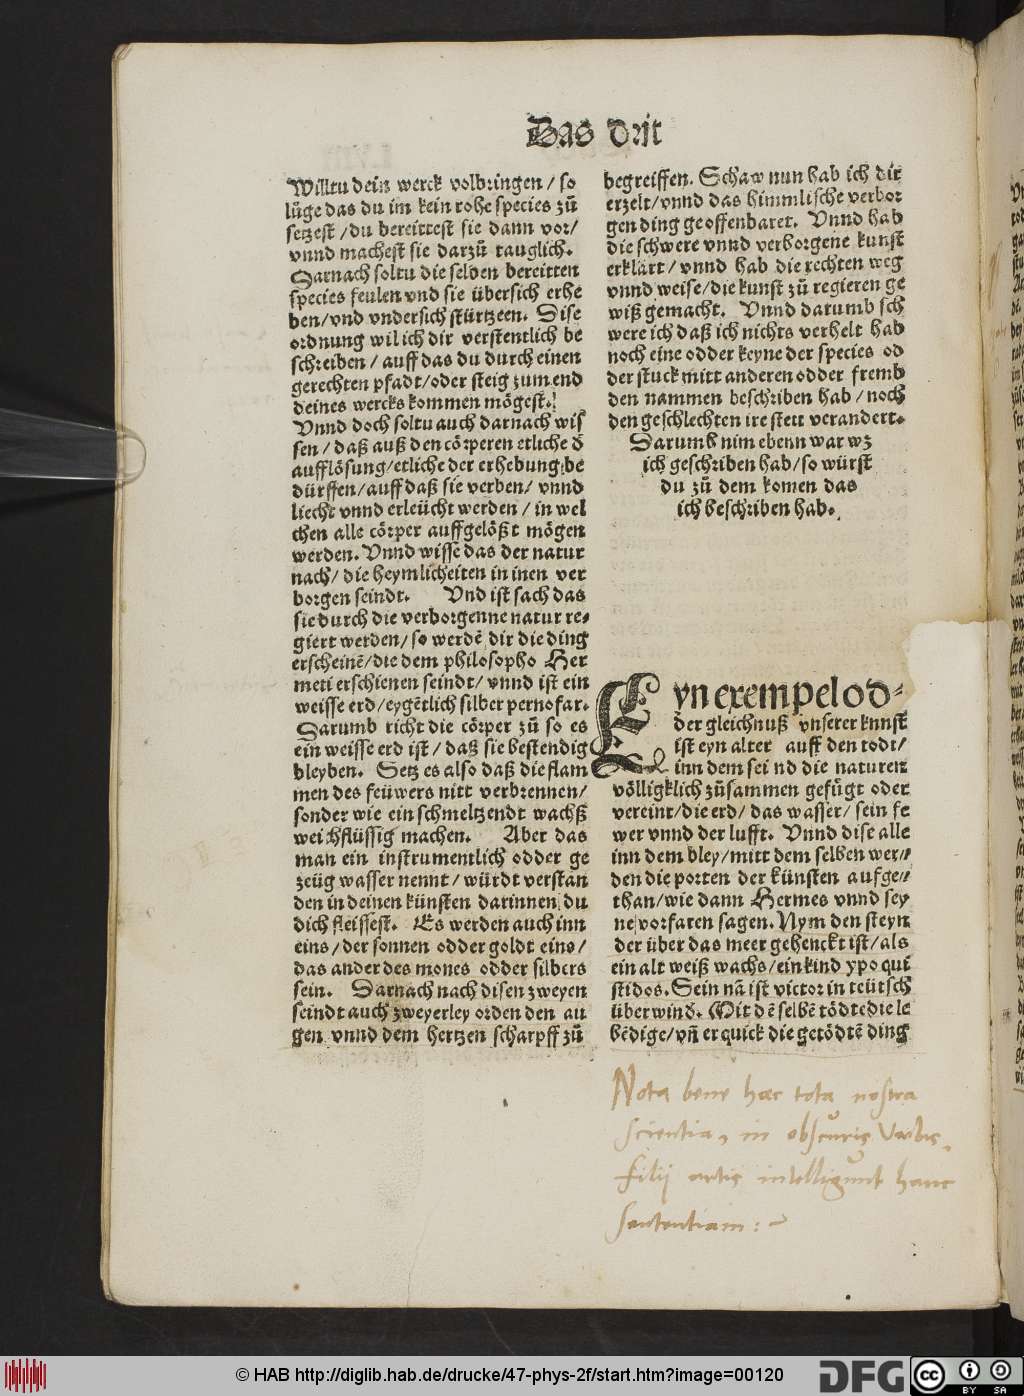 Das drit
Willtu dein werck volbringen / so
lůge das du im kein rohe species zů
setzest / du bereittest sie dann vor /
vnnd machest sie darzů tauglich.
Darnach soltu die selben bereitten
species feulen vnd sie übersich erhe
ben / vnd vndersich stürtzeen. Dise
ordnung wil ich dir verstentlich be
schreiben / auff das du durch einen
gerechten pfadt / oder steig zum end
deines wercks kommen mögest.
Vnnd doch soltu auch darnach wis
sen / daß auß den cörperen etliche d̃
aufflösung / etliche der erhebung be
dürffen / auff daß sie verben / vnnd
liecht vnnd erleücht werden / in wel
chen alle cörper auffgelößt mögen
werden. Vnnd wisse das der natur
nach / die heymlicheiten in inen ver
borgen seindt. Vnd ist sach das
sie durch die verborgenne natur re⸗
giert werden / so werdẽ dir die ding
erscheinẽ / die dem philosopho Her
meti erschienen seindt / vnnd ist ein
weisse erd / eygẽtlich silber pernofar.
Darumb richt die cörper zů so es
ein weisse erd ist / daß sie bestendig
bleyben. Setz es also daß die flam
men des feüwers nitt verbrennen /
sonder wie ein schmeltzendt wachß
weichflüssig machen. Aber das
man ein instrumentlich odder ge
zeüg wasser nennt / würdt verstan
den in deinen künsten darinnen du
dich fleissest. Es werden auch inn
eins / der sonnen odder goldt eins /
das ander des mones odder silbers
sein. Darnach nach disen zweyen
seindt auch zweyerley orden den au
gen vnnd dem hertzen scharpff zů
begreiffen. Schaw nun hab ich dir
erzelt / vnnd das himmlische verbor
gen ding geoffenbaret. Vnnd hab
die schwere vnnd verborgene kunst
erklärt / vnnd hab die rechten weg
vnnd weise / die kunst zů regieren ge
wiß gemacht. Vnnd darumb sch
were ich daß ich nichts verhelt hab
noch eine odder keyne der species od
der stuck mitt anderen odder fremb
den nammen beschriben hab / noch
den geschlechten ire stett verandert.
Darumb nim ebenn war wz
ich geschriben hab / so würst
du zů dem komen das
ich beschriben hab.
Eyn exempel od⸗
der gleichnuß vnserer knnst
ist eyn alter auff den todt /
inn dem sei nd die naturen
völligklich zůsammen gefůgt oder
vereint / die erd / das wasser / sein fe
wer vnnd der lufft. Vnnd dise alle
inn dem bley / mitt dem selben wer⸗
den die porten der künsten aufge⸗
than / wie dann Hermes vnnd sey
ne vorfaren sagen. Nym den steyn
der über das meer gehenckt ist / als
ein alt weiß wachs / ein kind ypo qui
stidos. Sein nã ist victor in teütsch
überwind. Mit dẽ selbẽ tödte die le
bẽdige / vñ erquick die getödtẽ ding
Nota bene haec tota nostra
scientia, in obscuris Verbis,
filij artis intelligunt hanc
sententiam:
© HAB http://diglib.hab.de/drucke/47-phys-2f/start.htm?image=00120
DFG
cc
BY SA